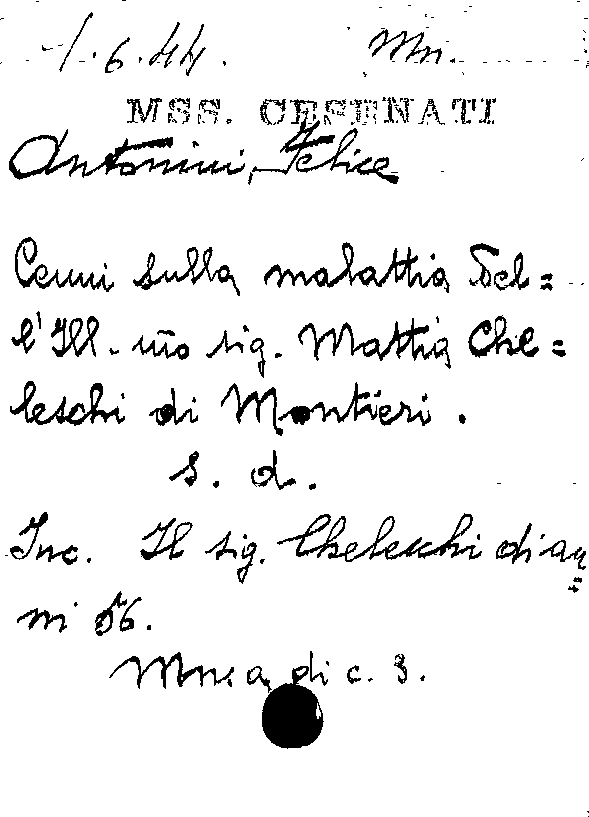 1.6.44. Mn.
MSS. CESENATI
Antonini, Felice
Cenni sulla malattia del=
l'Ill.mo sig. Mattia Che=
leschi di Montieri.
s. d.
Inc. Il sig. Cheleschi di an=
ni 56.
di c. 3.